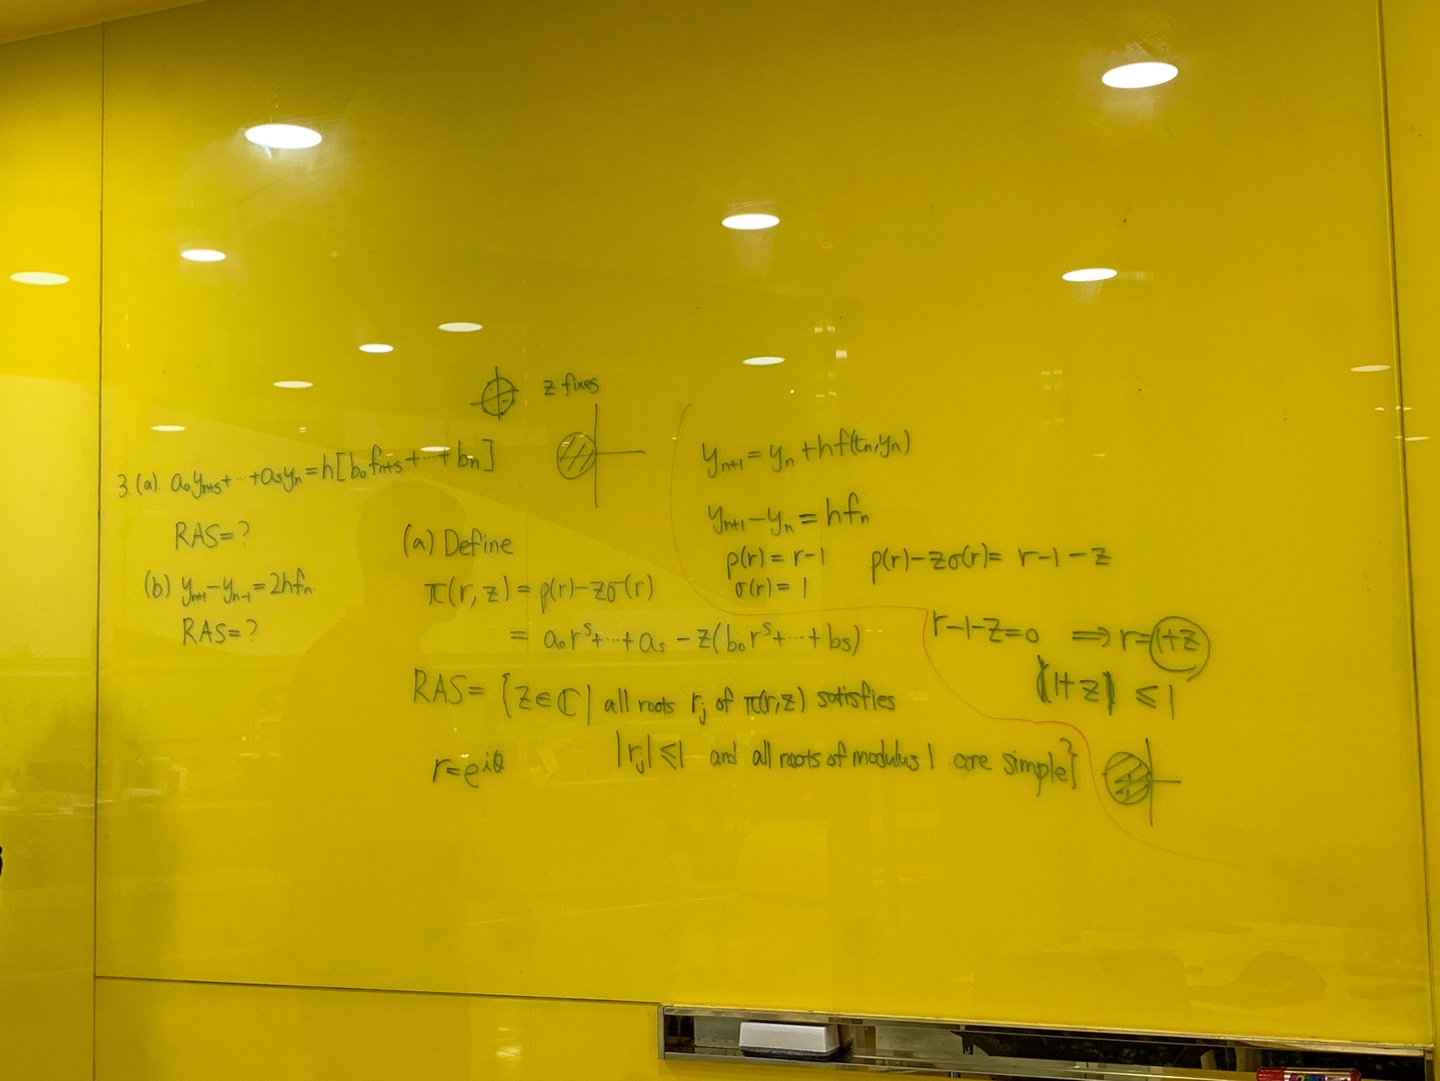 z fixes
3. (a) a₀yₙ₊ₛ+⋯+aₛyₙ=h[b₀fₙ₊ₛ+⋯+bₙ]
RAS=?
(b) yₙ₊₁-yₙ₋₁=2hfₙ.
RAS=?
(a) Define
π(r, z) = ρ(r)-zσ(r)
= a₀rˢ+⋯+aₛ-z(b₀rˢ+⋯+bₛ)
RAS= {z∈ℂ| all roots rⱼ of π(r,z) satisfies
|rⱼ|≤1 and all roots of modulus 1 are simple}
r=e^{iθ}
yₙ₊₁=yₙ+hf(tₙ,yₙ)
yₙ₊₁-yₙ=hfₙ
ρ(r)=r-1
σ(r)=1
ρ(r)-zσ(r)= r-1-z
r-1-z=0 ⟹ r=1+z
|1+z| ≤1